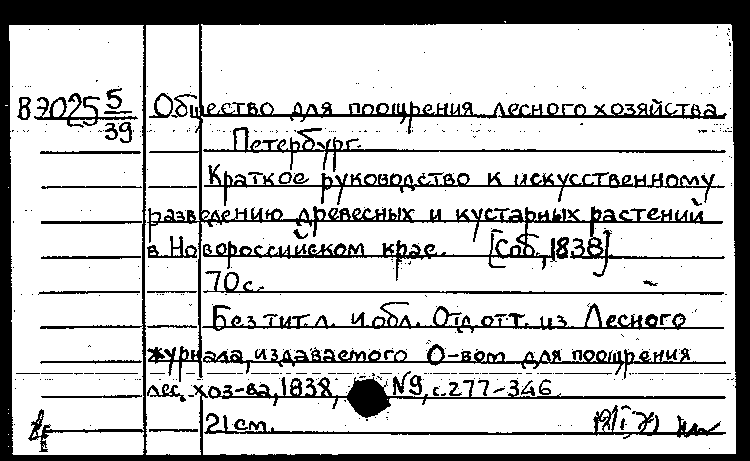 В7025 5/39 Общество для поощрения лесного хозяйства.
Петербург.
Краткое руководство к искусственному
разведению древесных и кустарных растений
в Новороссийском крае. [Спб., 1838].
70 с.
Без тит. л. и обл. Отд. отт. из Лесного
журнала, издаваемого О-вом для поощрения
лес. хоз-ва, 1838, N9, с. 277-346.
21 см.